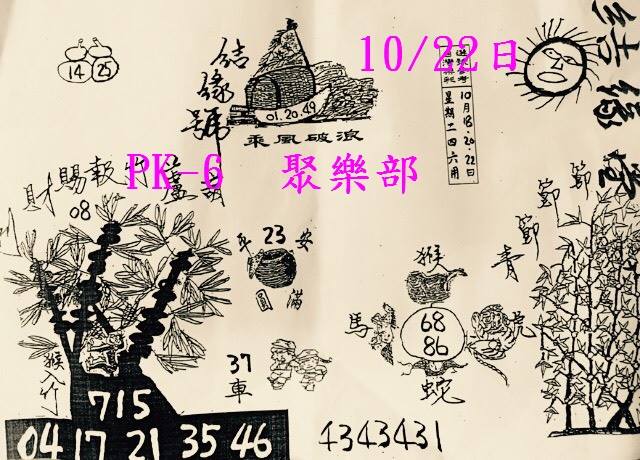 10/22日
結緣號
14 25
01.20.49
乘風破浪
10月18.20.22日
星期二四六用
結緣燈
PK-6 聚樂部
財賜報竹
08
平 23 安
圓 滿
節節
節
青
猴
馬 68 虎
86
蛇
猴
37
車
715
04 17 21 35 46
4343431